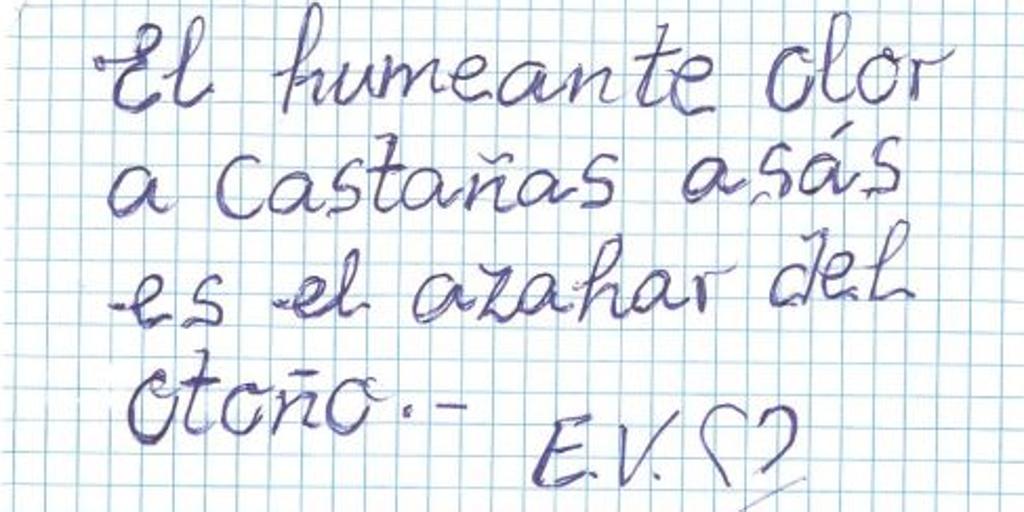 El humeante olor
a Castañas asás
es el azahar del
otoño.-
E.V.